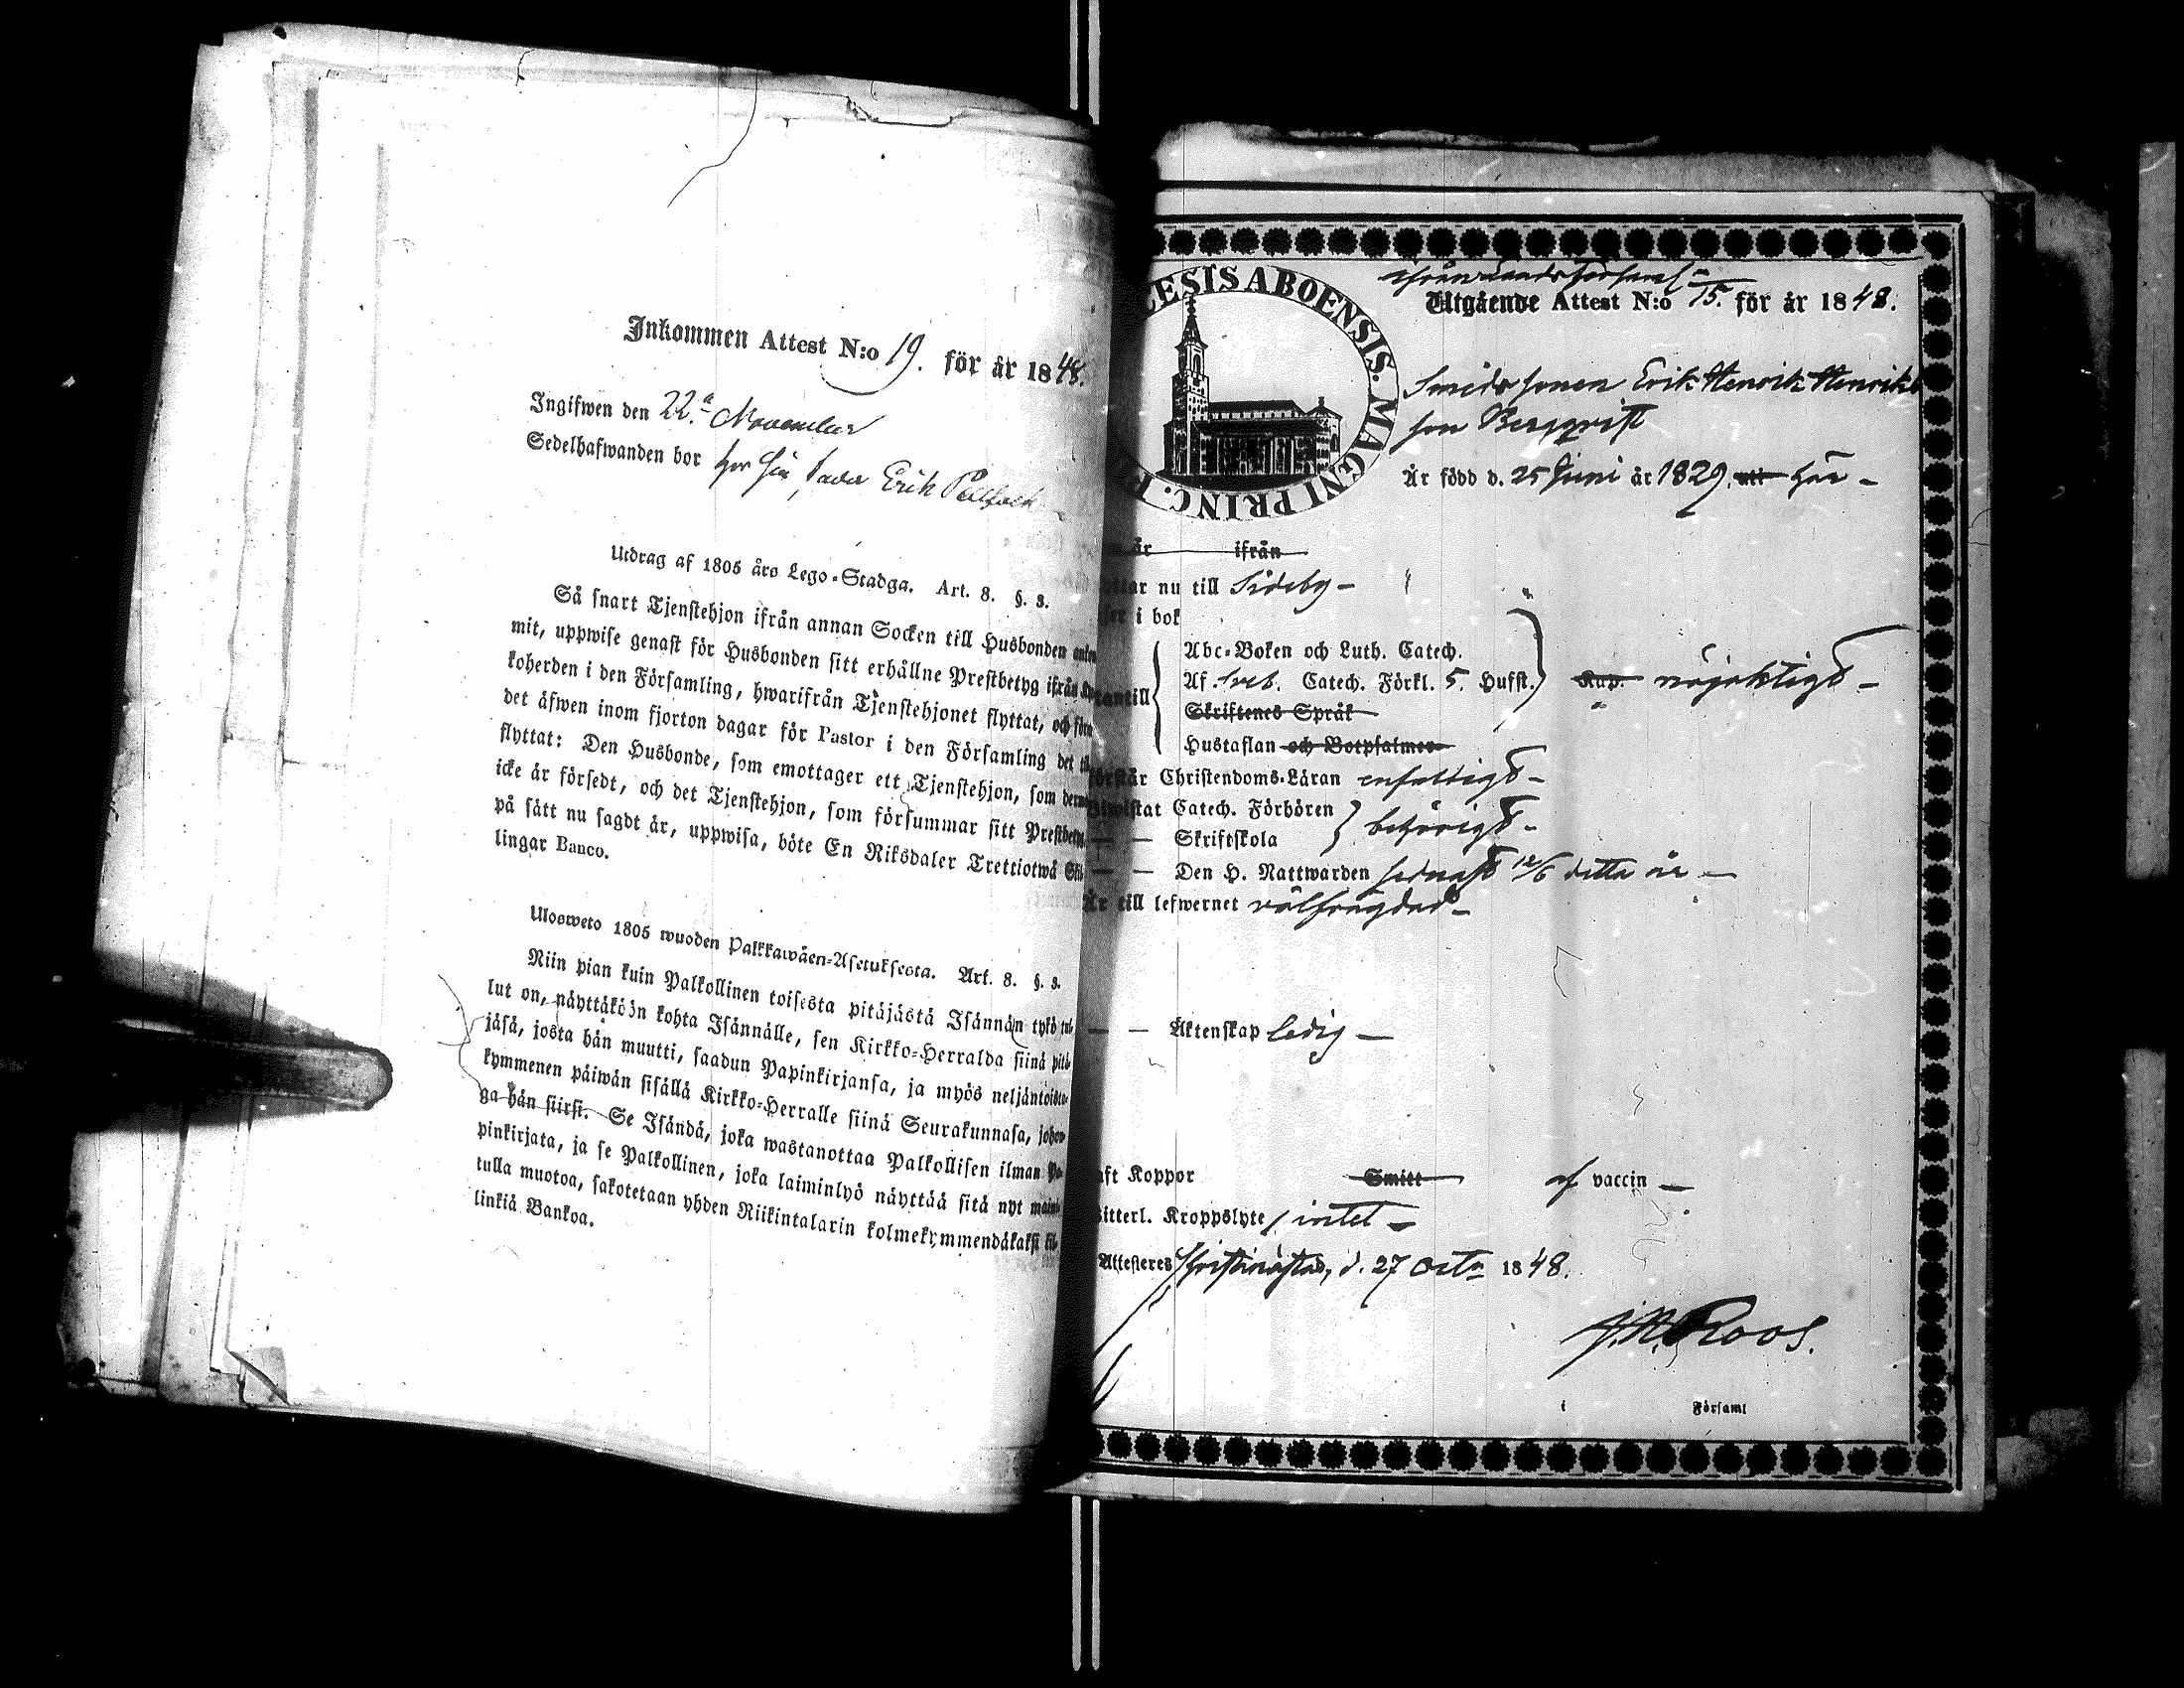 Inkommen Attest N:o 19. för år 1848.
Ingifwen den 22a November
Sedelhafwanden bor hos sin fader Erik
Utdrag af 1805 års Lego-Stadga. Art. 8. §. 3.
Så snart Tjenstehjon ifrån annan Socken till Husbonden
mit, uppwise genast för Husbonden sitt erhållne Prestbetyg ifrån
koherden i den Församling, hwarifrån Tjenstehjonet flyttat, och
det äfwen inom fjorton dagar för Pastor i den Församling det
flyttat: Den Husbonde, som emottager ett Tjenstehjon, som
icke är försedt, och det Tjenstehjon, som försummar sitt
på sätt nu sagdt är, uppwisa, böte En Riksdaler Trettiotwå
lingar Banco.
Ulosweto 1805 wuoden Palkkawäen-Asetuksesta. Art. 8. §. 3.
Niin pian kuin Palkollinen toisesta pitäjästä Isännän tykö tul-
lut on, näyttäköön kohta Isännälle, sen Kirkko-Herralda siinä pitä-
jäsä, josta hän muutti, saadun Papinkirjansa, ja myös neljäntoista-
kymmenen päiwän sisällä Kirkko-Herralle siinä Seurakunnasa, johon-
ga hän siirsi. Se Isändä, joka wastanottaa Palkollisen ilman Pa-
pinkirjata, ja se Palkollinen, joka laiminlyö näyttää sitä nyt
tulla muotoa, sakotetaan yhden Riikintalarin kolmekymmendäkaksi kil-
linkiä Bankoa.
ESIS ABOENSIS. MAGNI PRINC. F
ifrån Landsförsaml:
Utgående Attest N:o 15. för år 1848.
Smidssonen Erik Henrik Henriks
son Bergqvist
Är född d. 25 Juni år 1829. uti här –
är ifrån
ttar nu till Sideby –
ser i bok
Abc-Boken och Luth. Catech.
antill Af Sveb. Catech. Förkl. 5. Hufst. Kap. nöjaktigt –
Skriftenes Språk
Hustaflan och Botpsalmer
Förstår Christendoms-Läran enfaldigt –
Biwistat Catech. Förhören
— — Skriftskola behörigt –
— — Den H. Nattwarden sednast 12/6 detta år –
Är till lefwernet välfrägdad –
— — Äktenskap ledig –
aft Koppor Smitt af vaccin –
itterl. Kroppslyte / intet –
Attesteres Christinestad, d. 27 Octr 1848.
Roos.
i Församl